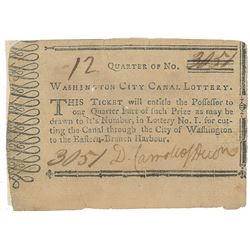 12 QUARTER OF No. 3051
WASHINGTON CITY CANAL LOTTERY.
THIS TICKET will entitle the Possessor to
one Quarter Part of such Prize as may be
drawn to it's Number, in Lottery No. I. for cut-
ting the Canal through the City of Washington
to the Eastern-Branch Harbour.
3051 D. Carroll of Duddn